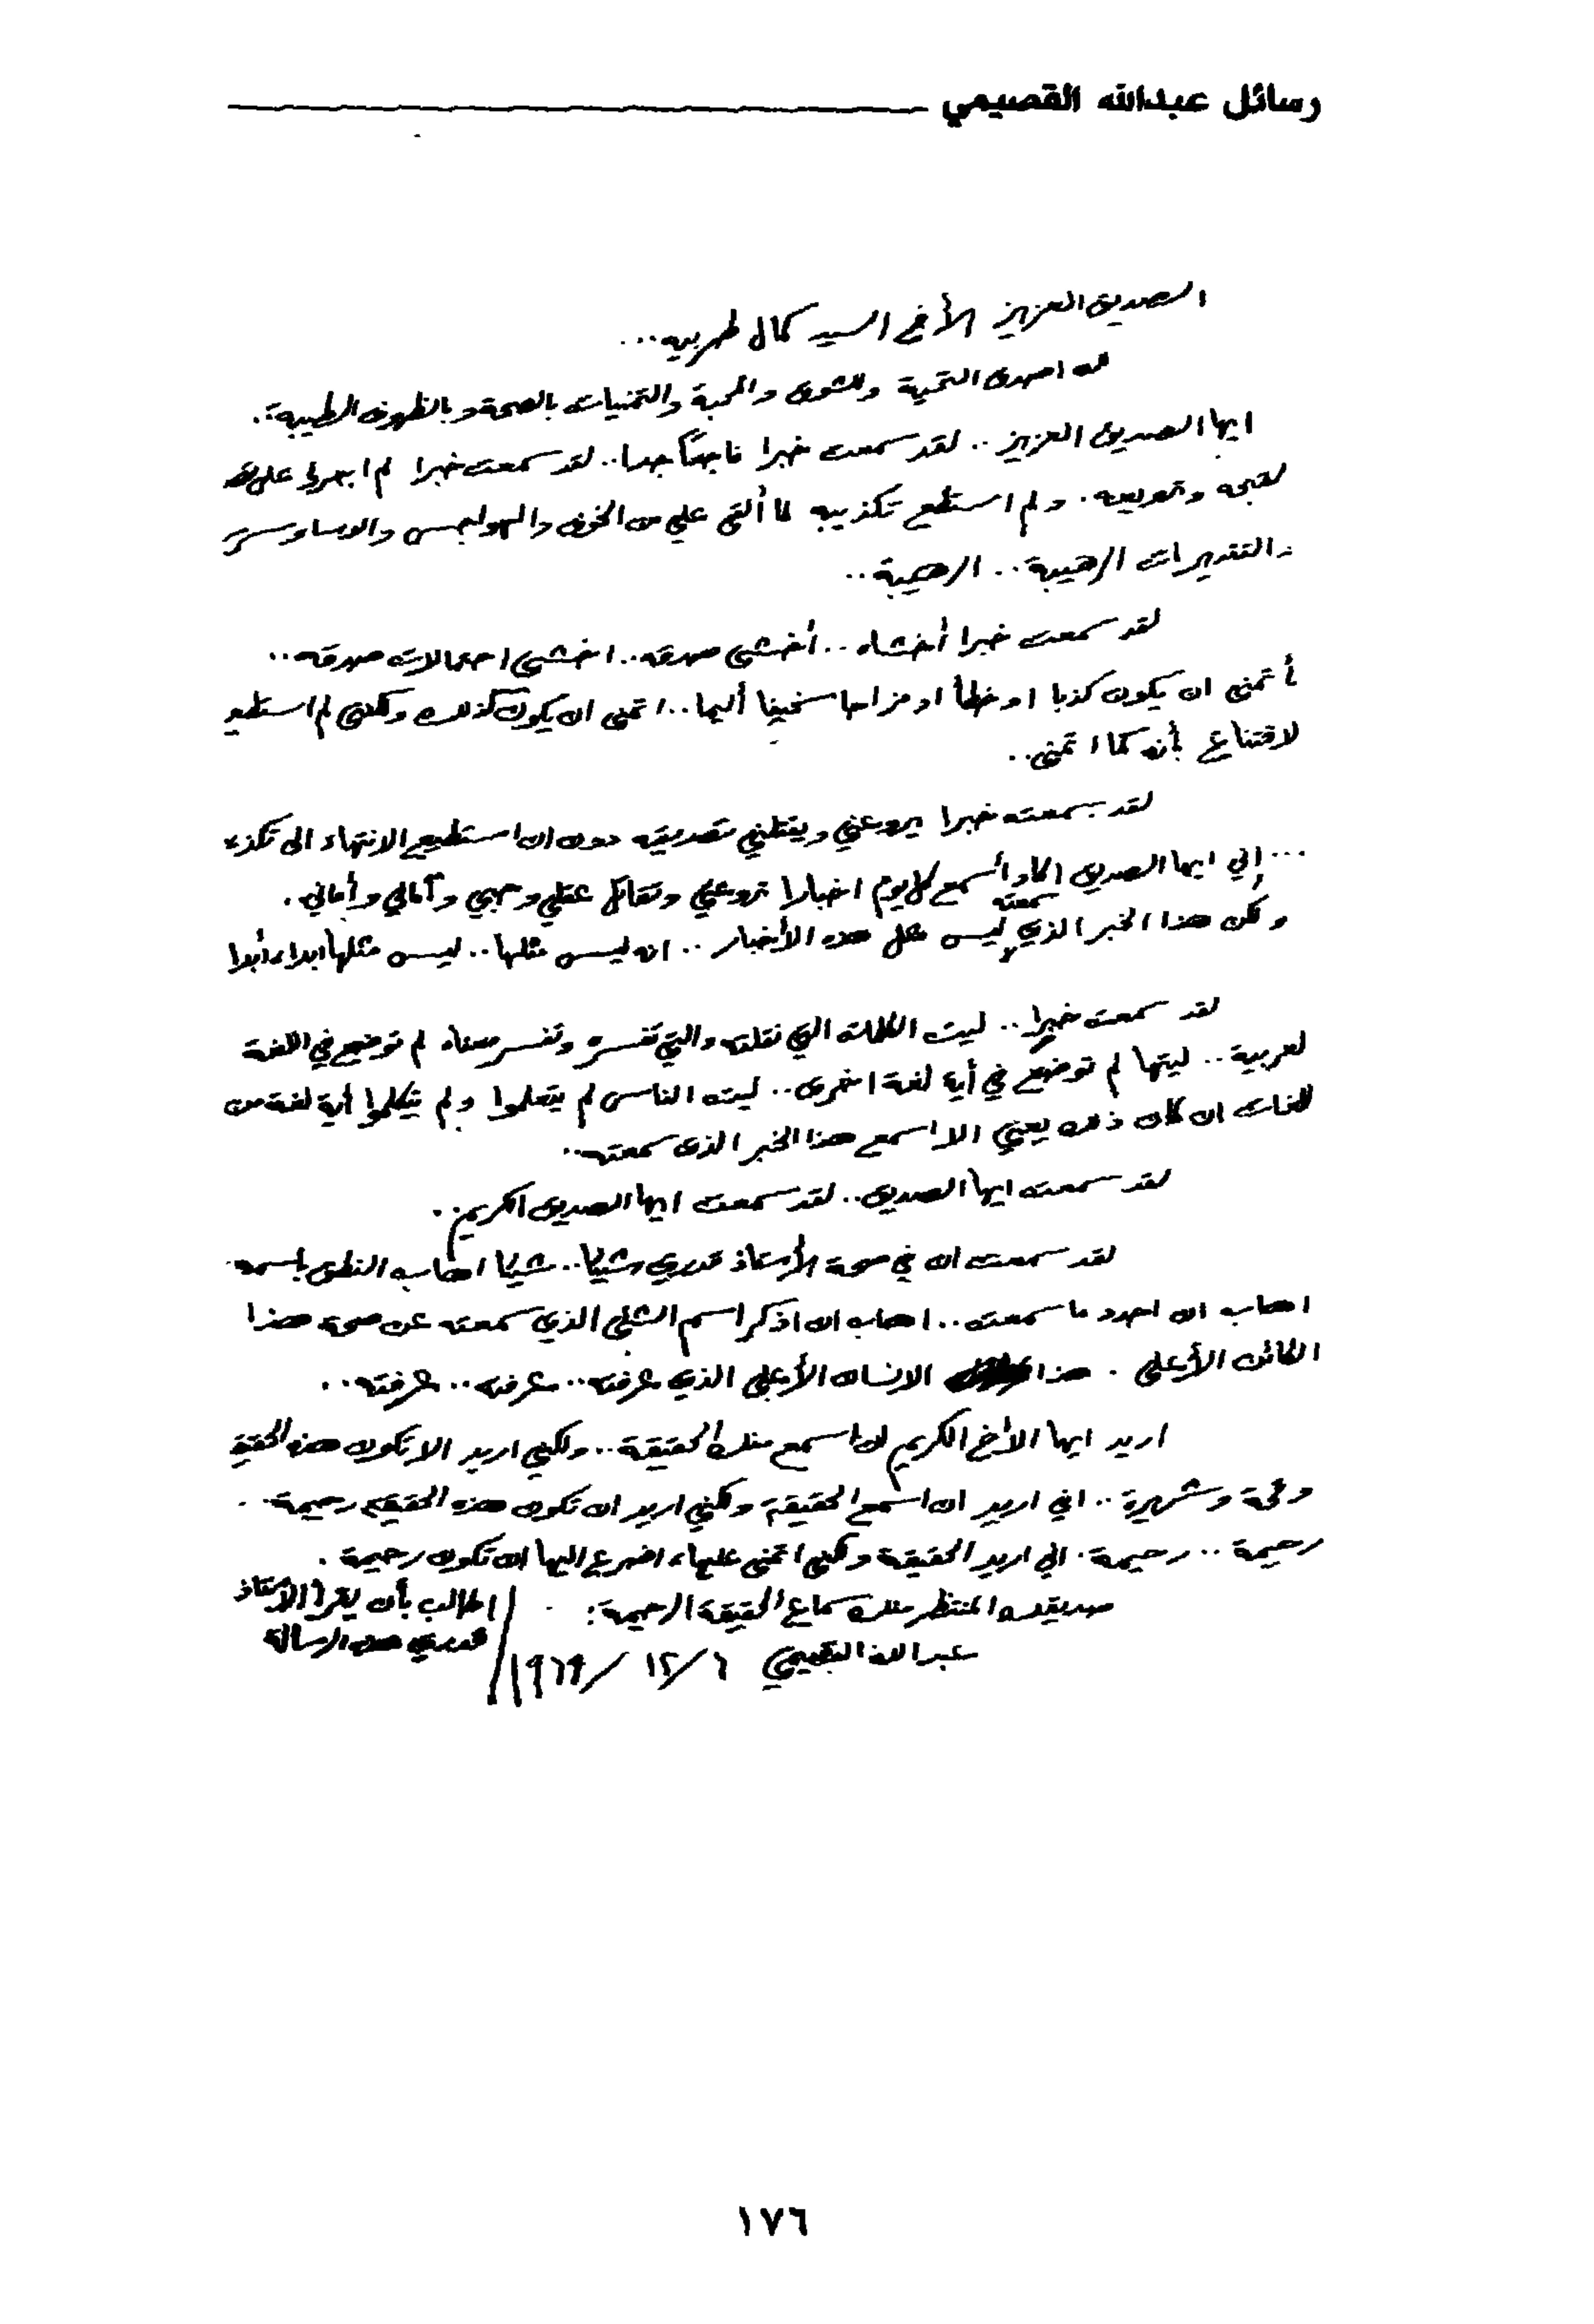 رسائل عبدالله القصيمي
الصديق العزيز الأخ السيد كمال طربيه...
لك اصدق التحية والشوق والمحبة والتمنيات بالصحة وبالظروف الطيبة..
ايها الصديق العزيز .. لقد سمعت خبرا فاجعاً جدا.. لقد سمعت خبرا لم اجرؤ على
لقبحه وترويعه . ولم استطع تكذيبه لما ألقى علي من الخوف والهواجس والوساوس
والتقديرات الرهيبة .. الرهيبة ..
لقد سمعت خبرا أخشاه .. أخشى صدقه .. اخشى احتمالات صدقه ..
أتمنى ان يكون كذبا او خطأ او مزاحا سخيفا أليما .. اتمنى ان يكون كذلك ولكنى لم استطع
لاقتناع بأنه كما اتمنى ..
لقد سمعت خبرا يروعني ويقتلني تصديقه دون ان استطيع الانتهاء الى
... إني ايها الصديق اكاد أسمع كل يوم اخبارا تروعني وتقاتل عقلي وحبي وآمالي وأماني .
ولكن هذا الخبر الذي سمعته ليس مثل هذه الأخبار .. انه ليس مثلها .. ليس مثلها ابدا، أبدا
لقد سمعت خبرا .. ليت الكلمات التي نقلته والتي تفسره وتفسر معناه لم توضع في اللغة
لعربية .. ليتها لم توضع في أية لغة اخرى .. ليت الناس لم يتعلموا ولم يتكلموا أية لغة من
اللغات ان كان ذلك يعني الا اسمع هذا الخبر الذى سمعته ..
لقد سمعت ايها الصديق .. لقد سمعت ايها الصديق الكريم ..
لقد سمعت ان في صحة الأستاذ قدري شيئا .. شيئا اهاب النطق باسمه
اهاب ان احدد ما سمعت .. اهاب ان اذكر اسم الشيء الذي سمعته عن صحة هذا
الكائن الأعلى . هذا الانسان الأعلى الذي عرفته .. عرفته .. عرفته ..
اريد ايها الأخ الكريم ان اسمع منك الحقيقة .. ولكني اريد الا تكون هذه الحقيقة
وقحة وشريرة .. اني اريد ان اسمع الحقيقة ولكني اريد ان تكون هذه الحقيقة رحيمة .
رحيمة .. رحيمة . اني اريد الحقيقة ولكني اتمنى عليها، اضرع اليها ان تكون رحيمة .
صديقك المنتظر منك سماع الحقيقة الرحيمة :
عبدالله القصيمي ٦ / ١٢ / ١٩٦٩
اطالب بأن يقرأ الأستاذ
قدري هذه الرسالة
١٧٦